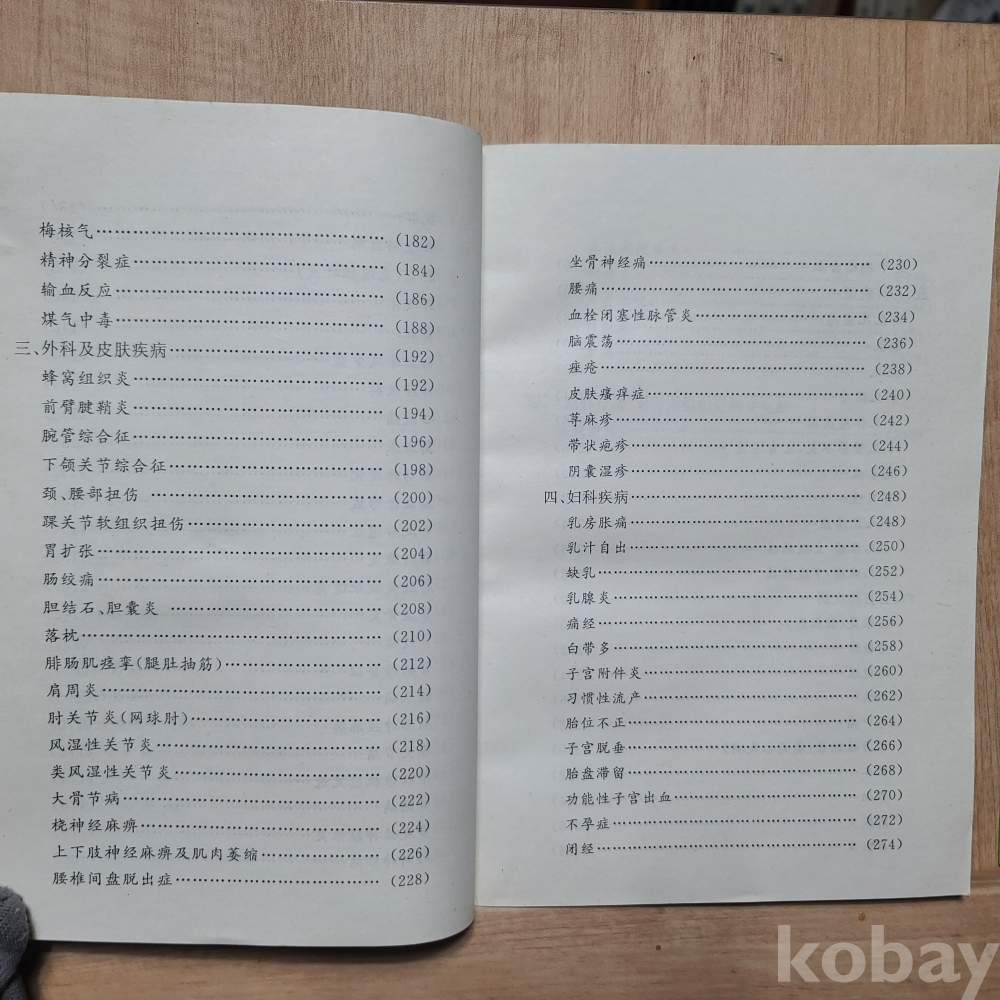 梅核气……………………………………(182)
精神分裂症………………………………(184)
输血反应…………………………………(186)
煤气中毒…………………………………(188)
三、外科及皮肤疾病……………………(192)
蜂窝组织炎………………………………(192)
前臂腱鞘炎………………………………(194)
腕管综合征………………………………(196)
下颌关节综合征…………………………(198)
颈、腰部扭伤……………………………(200)
踝关节软组织扭伤………………………(202)
胃扩张……………………………………(204)
肠绞痛……………………………………(206)
胆结石、胆囊炎…………………………(208)
落枕………………………………………(210)
腓肠肌痉挛(腿肚抽筋)…………………(212)
肩周炎……………………………………(214)
肘关节炎(网球肘)………………………(216)
风湿性关节炎……………………………(218)
类风湿性关节炎…………………………(220)
大骨节病…………………………………(222)
桡神经麻痹………………………………(224)
上下肢神经麻痹及肌肉萎缩……………(226)
腰椎间盘脱出症…………………………(228)
坐骨神经痛………………………………(230)
腰痛………………………………………(232)
血栓闭塞性脉管炎………………………(234)
脑震荡……………………………………(236)
痤疮………………………………………(238)
皮肤瘙痒症………………………………(240)
荨麻疹……………………………………(242)
带状疱疹…………………………………(244)
阴囊湿疹…………………………………(246)
四、妇科疾病……………………………(248)
乳房胀痛…………………………………(248)
乳汁自出…………………………………(250)
缺乳………………………………………(252)
乳腺炎……………………………………(254)
痛经………………………………………(256)
白带多……………………………………(258)
子宫附件炎………………………………(260)
习惯性流产………………………………(262)
胎位不正…………………………………(264)
子宫脱垂…………………………………(266)
胎盘滞留…………………………………(268)
功能性子宫出血…………………………(270)
不孕症……………………………………(272)
闭经………………………………………(274)
kobay